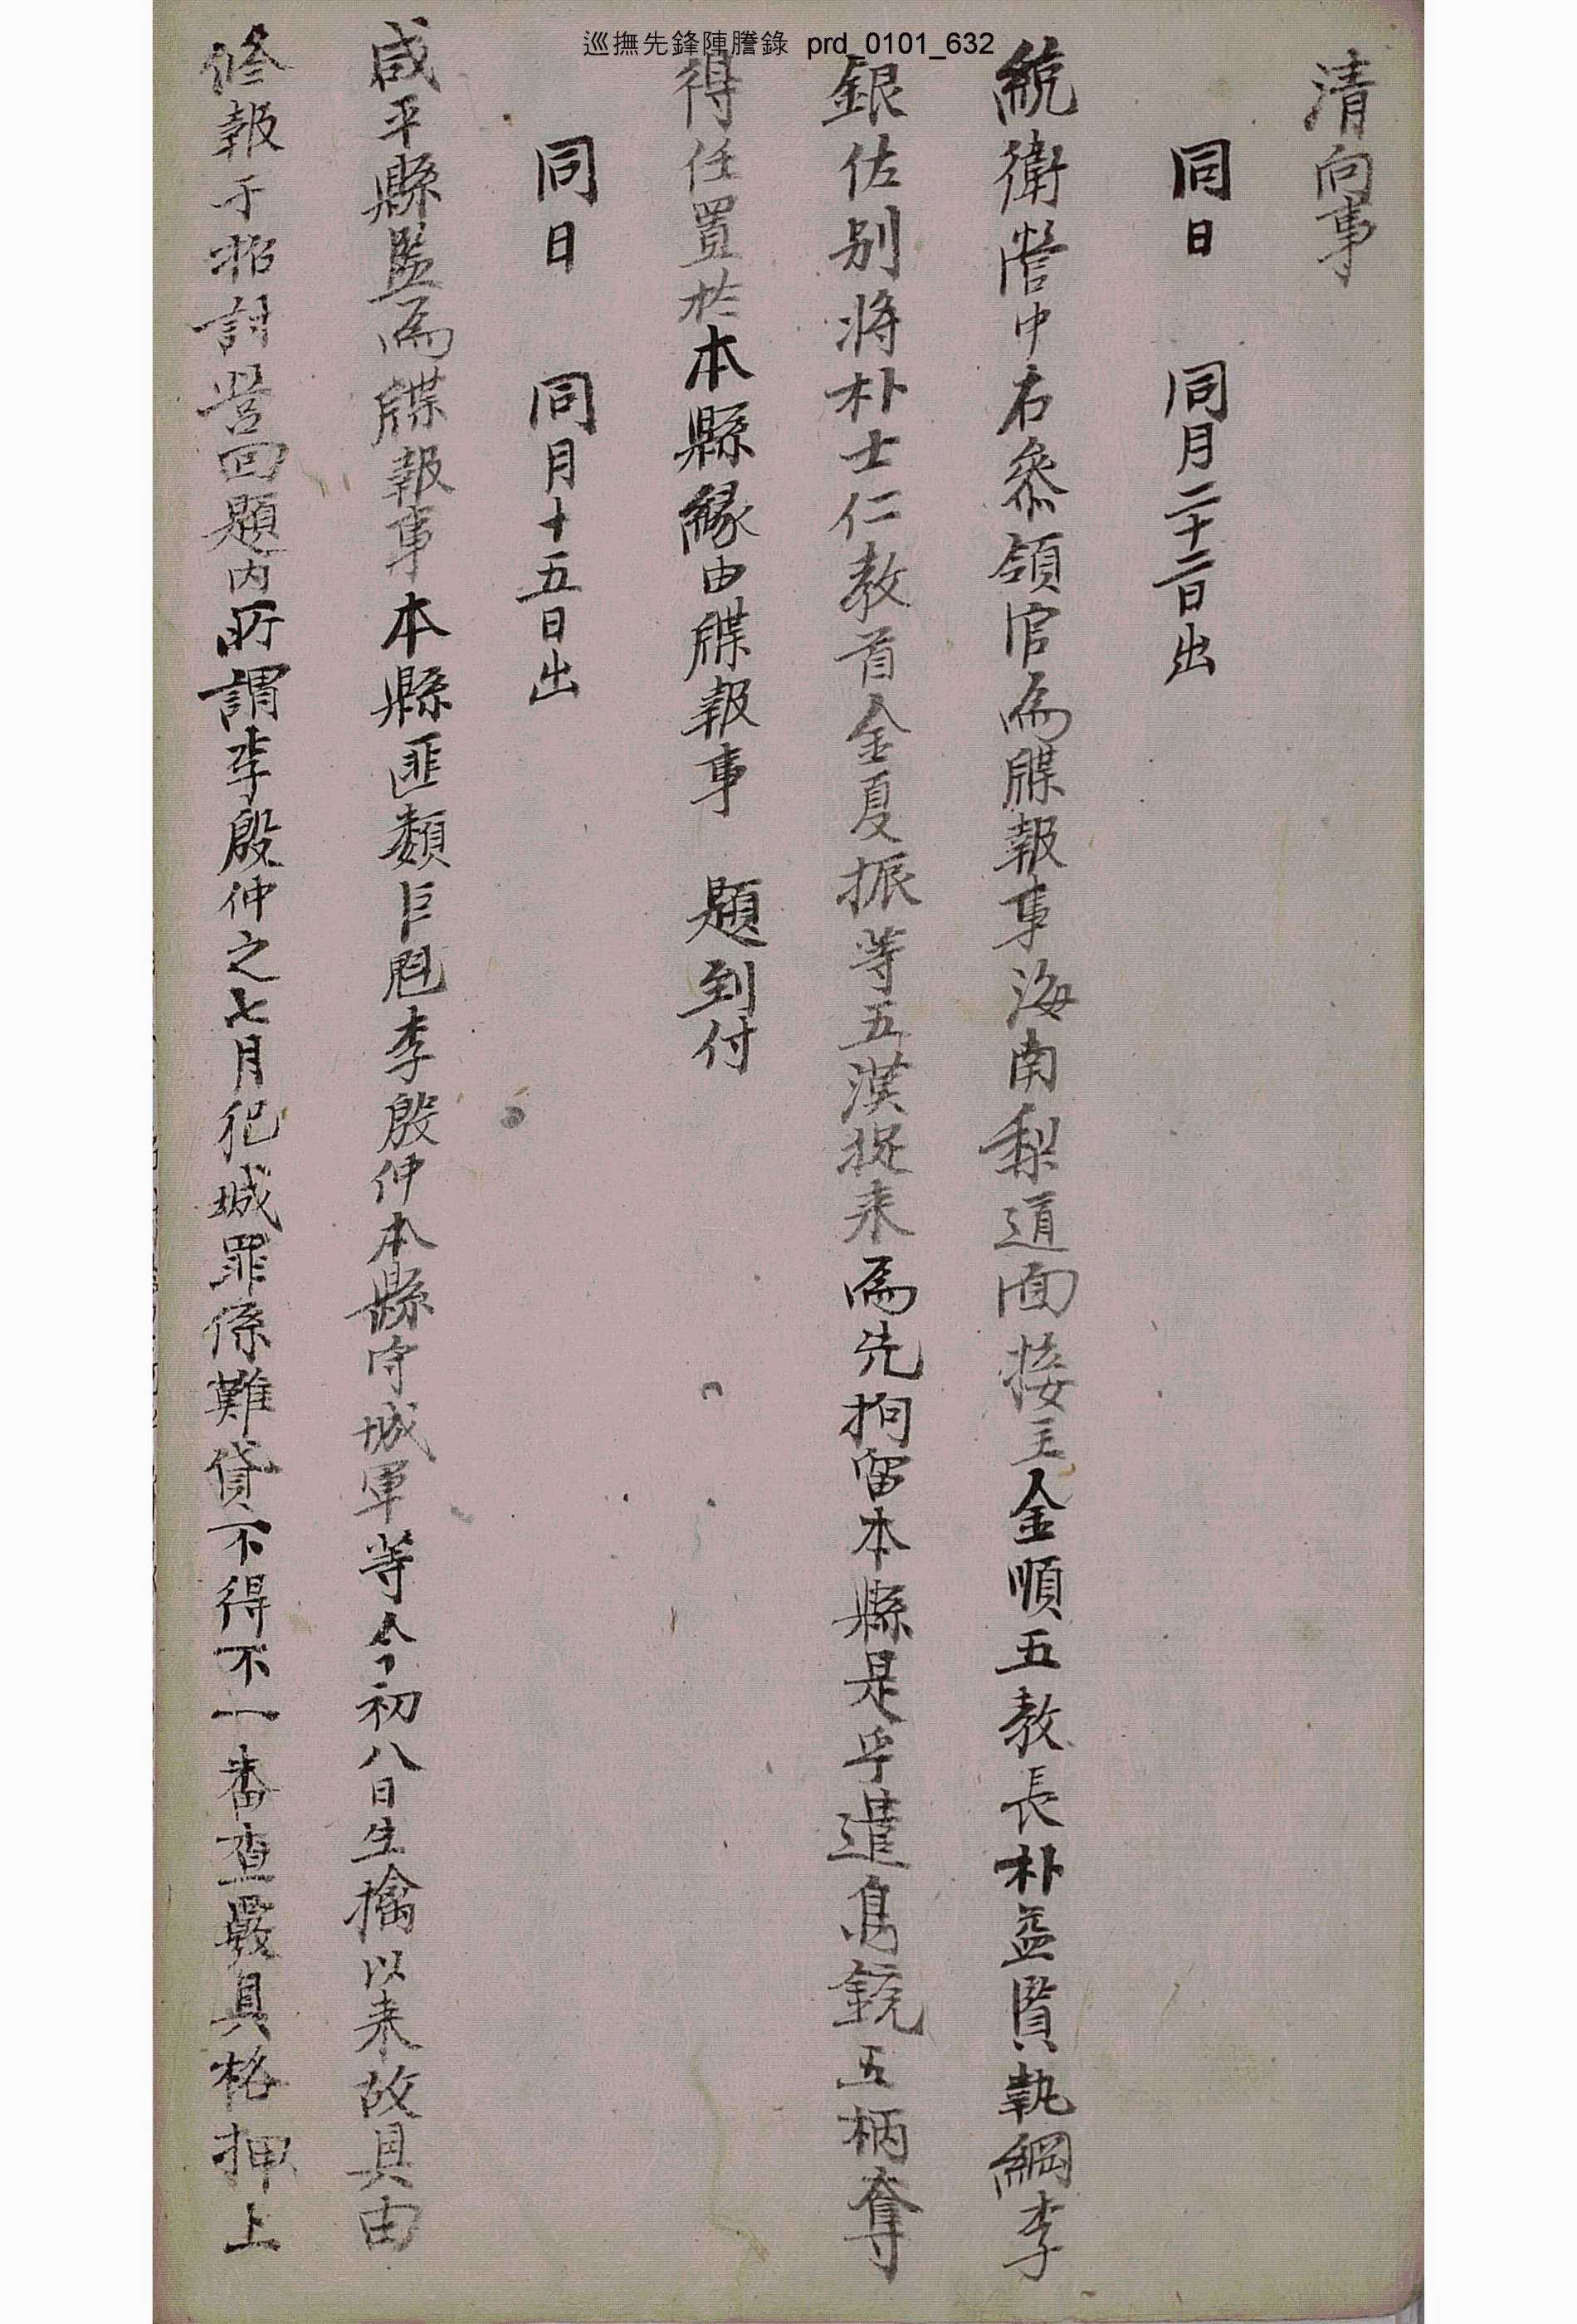 巡撫先鋒陣謄錄 prd_0101_632
清向事
同日 同月二十二日出
統衛營中右叅領官爲牒報事海南梨道面接主金順五敎長朴益賢執綱李
銀佐别將朴士仁敎首金夏振等五漢捉來爲先拘留本縣是乎遣鳥銃五柄奪
得任置於本縣緣由牒報事 題到付
同日 同月十五日出
咸平縣監爲牒報事本縣匪類巨魁李殷仲本縣守城軍等今初八日生擒以來故具由
修報于招討營回題內所謂李殷仲之七月犯城罪係難貸不得不一番查覈具格押上